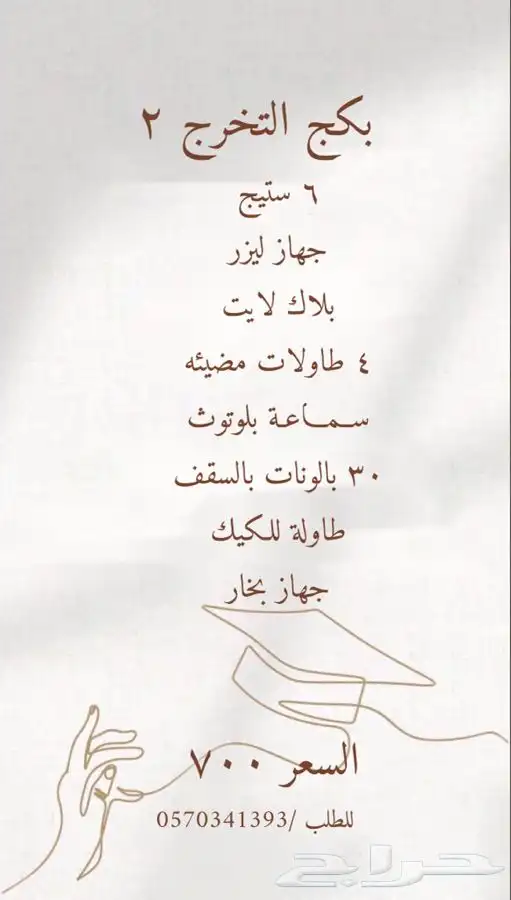 بكج التخرج ٢
٦ ستيج
جهاز ليزر
بلاك لايت
٤ طاولات مضيئه
سمـــاعـة بلوتوث
٣٠ بالونات بالسقف
طاولة للكيك
جهاز بخار
السعر ٧٠٠
للطلب /0570341393
حراج